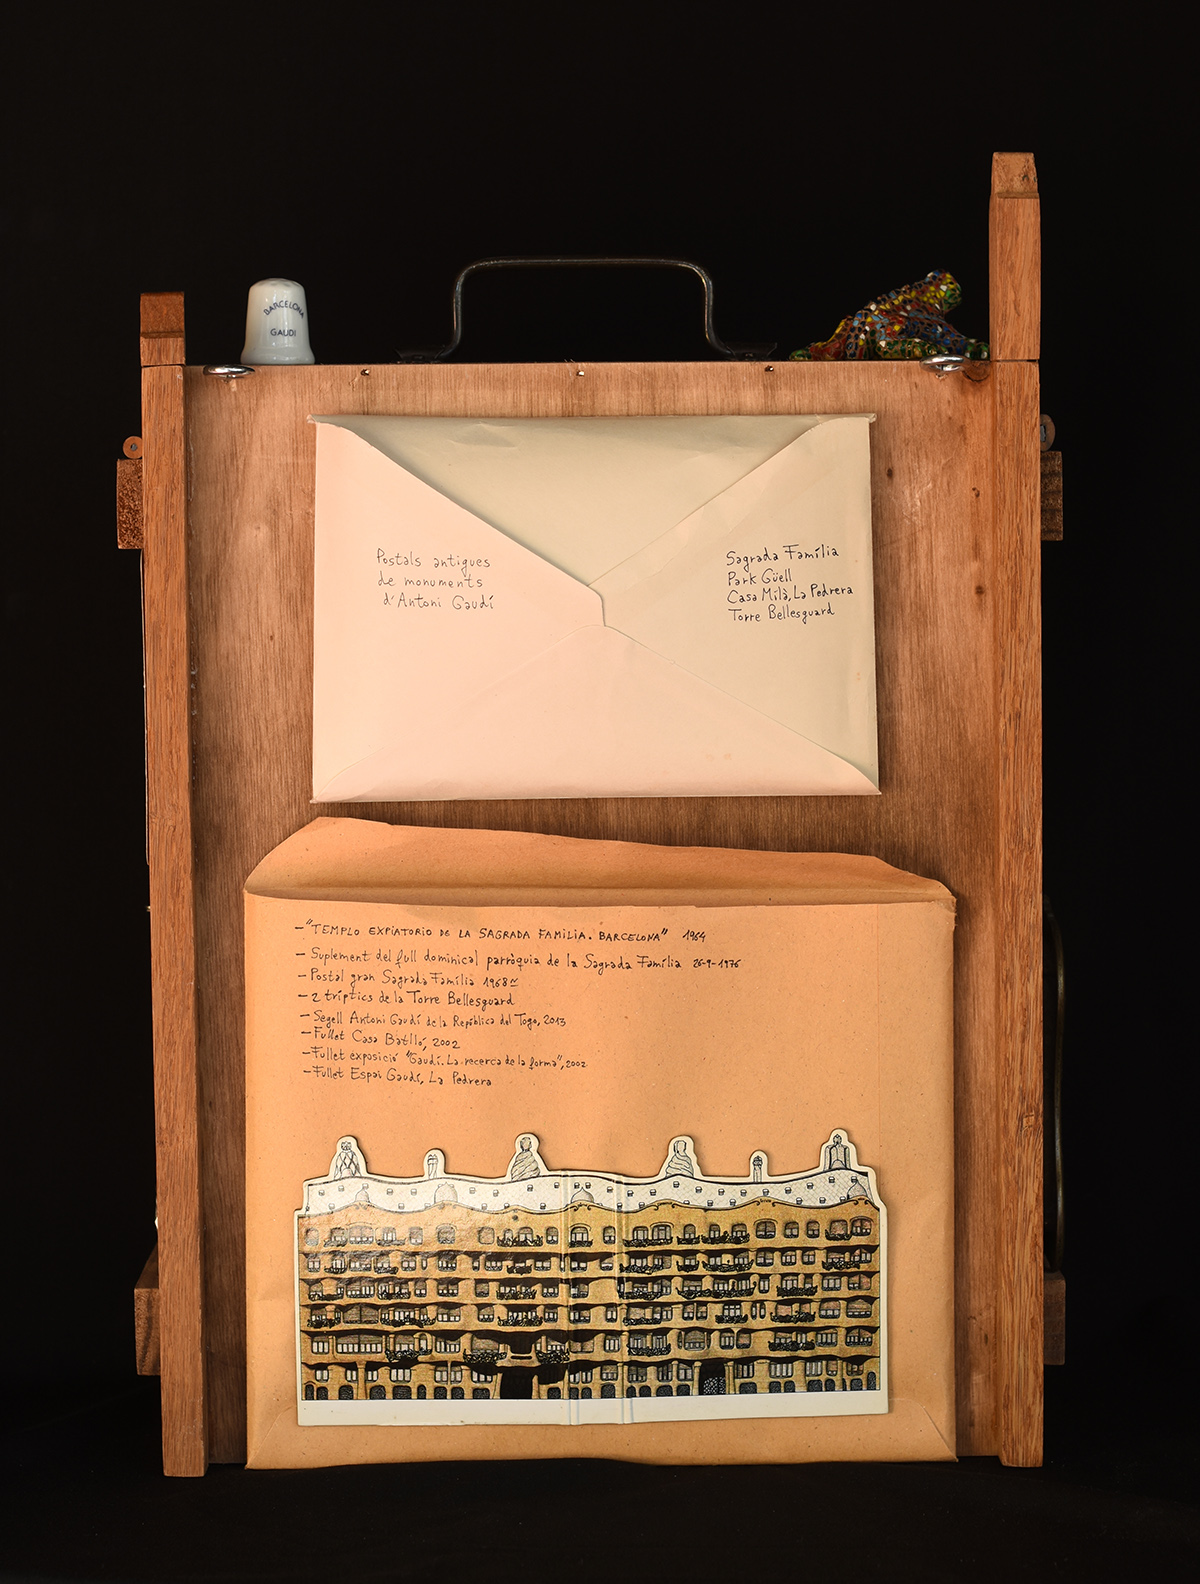 BARCELONA
GAUDI
Postals antigues
de monuments
d'Antoni Gaudí
Sagrada Família
Park Güell
Casa Milà, La Pedrera
Torre Bellesguard
- "TEMPLO EXPIATORIO DE LA SAGRADA FAMILIA. BARCELONA" 1964
- Suplement del full dominical parròquia de la Sagrada Família 26-9-1976
- Postal gran Sagrada Família 1968
- 2 tríptics de la Torre Bellesguard
- Segell Antoni Gaudí de la República del Togo, 2013
- Fullet Casa Batlló, 2002
- Fullet exposició "Gaudí. La recerca de la forma", 2002
- Fullet Espai Gaudí, La Pedrera